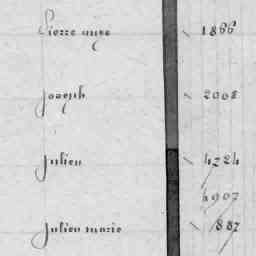 Pierre ange 1866
Joseph 2008
Julien 4724
4907
Julien marie 1887